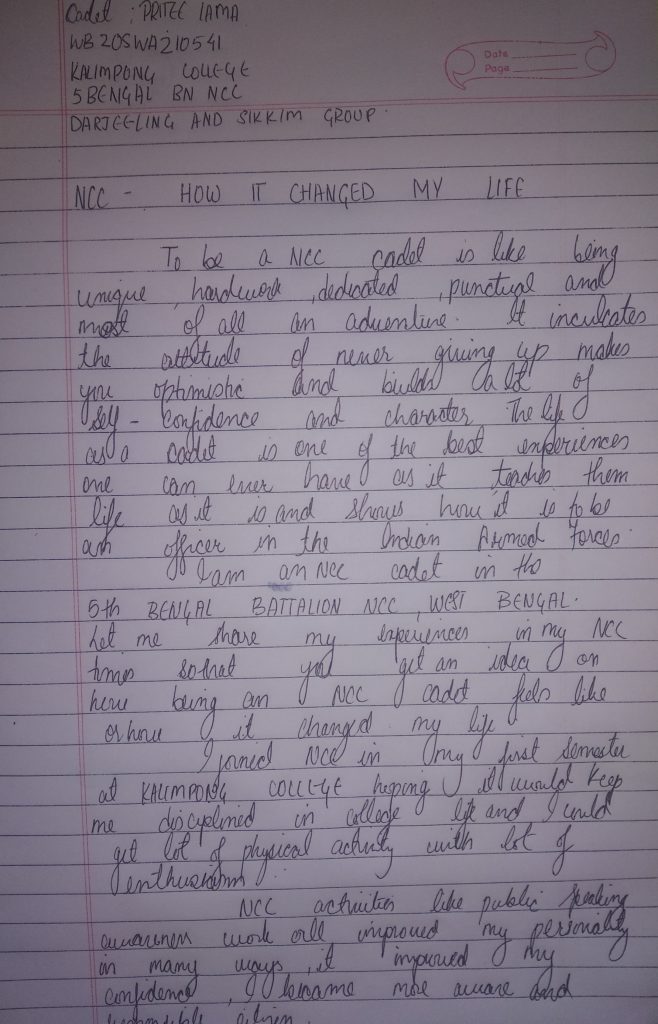 Cadet : PRITEE LAMA
WB20SWA210541
KALIMPONG COLLEGE
5 BENGAL BN NCC
DARJEELING AND SIKKIM GROUP.
Date
Page
NCC - HOW IT CHANGED MY LIFE
To be a NCC cadet is like being
unique, hardwork, dedicated, punctual and
most of all an adventure. It inculcates
the attitude of never giving up makes
you optimistic and builds a lot of
self-confidence and character. The life
as a cadet is one of the best experiences
one can ever have as it teaches them
life as it is and shows how it is to be
an officer in the Indian Armed Forces.
I am an NCC cadet in the
5th BENGAL BATTALION NCC, WEST BENGAL.
Let me share my experiences in my NCC
times so that you get an idea on
how being an NCC cadet feels like
or how it changed my life
I joined NCC in my first semester
at KALIMPONG COLLEGE hoping it would keep
me disciplined in college life and I could
get lot of physical activity with lot of
enthusiasm.
NCC activities like public speaking
awareness work all improved my personality
in many ways, it improved my
confidence, I became more aware and
responsible citizen.